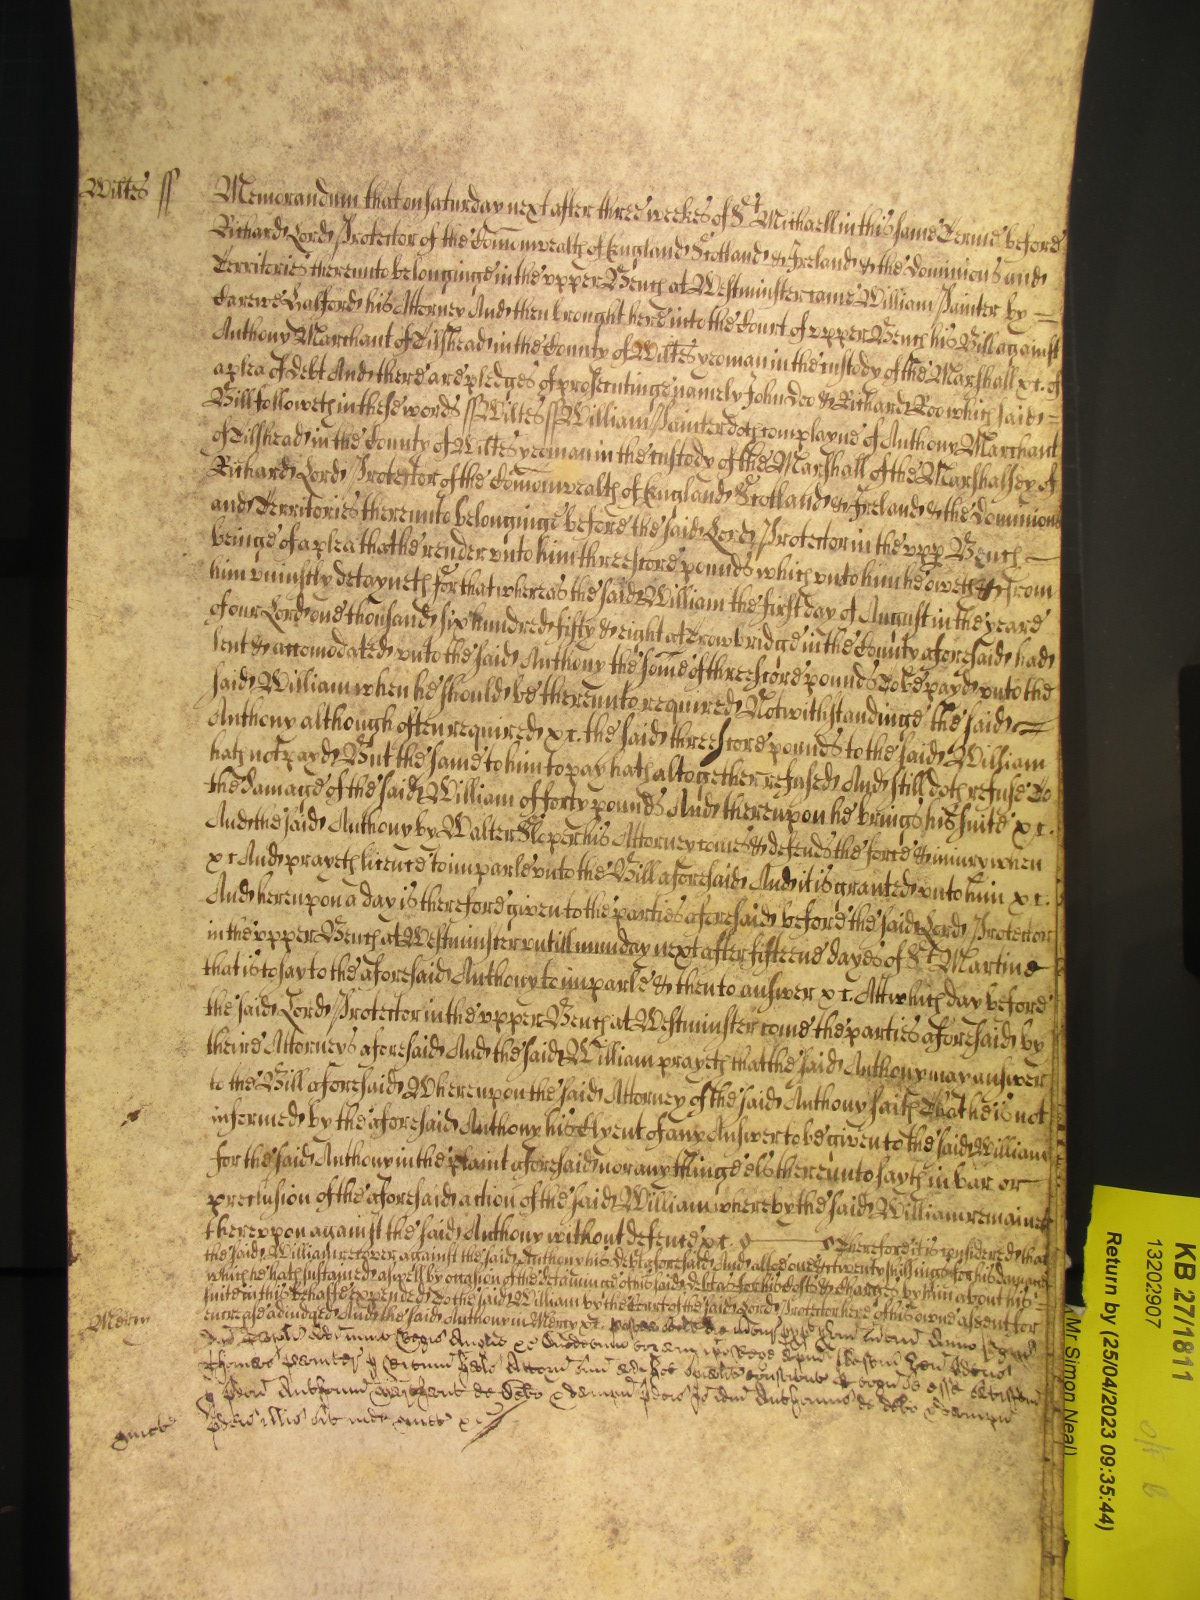 Wiltes ss Memorandum that on Saturday next after three weekes of St Michaell in this same Terme before
Richard Lord Protector of the Comonwealth of England Scotland & Ireland & the Dominions and
Territories thereunto belonginge in the upper Bench at Westminster came William Painter by
his Attorney And then brought here into the Court of upper Bench his Bill against
Anthony Marchant of Tilshead in the County of Wiltes yeoman in the custody of the Marshall xc. of
a plea of debt And there are pledges of prosecutinge namely John Doo & Richard Roo which said
Bill followeth in these words ss Wiltes ss William Painter doth complayne of Anthony Marchant
of Tilshead in the County of Wiltes yeoman in the custody of the Marshall of the Marshallsey of
Richard Lord Protector of the Comonwealth of England Scotland & Ireland & the Dominions
and Territories thereunto belonginge before the said Lord Protector in the upp Bench
beinge of a plea that he render unto him threescore pounds which unto him he oweth & from
him uniustly detayneth For that whereas the said William the first day of August in the yeare
of our Lord one thousand six hundred fifty & eight at Trowbridge in the County aforesaid had
lent & accomodated unto the said Anthony the some of threescore pounds To be payd unto the
said William when he should be thereunto required Notwithstandinge the said
Anthony although often required xc. the said threescore pounds to the said William
hath not payd But the same to him to pay hath altogether refused And still doth refuse To
the damage of the said William of forty pounds And thereupon he brings his suite xc.
And the said Anthony by Walter Sloper his Attorney comes & defends the force & iniury when
xc And prayeth licence to imparle unto the Bill aforesaid And it is granted unto him xc.
And hereupon a day is therefore given to the parties aforesaid before the said Lord Protector
in the upper Bench at Westminster untill munday next after fifteene dayes of St Martine
that is to say to the aforesaid Anthony to imparle & then to answer xc. Att which day before
the said Lord Protector in the upper Bench at Westminster come the parties aforesaid by
theire Attorneys aforesaid And the said William prayeth that the said Anthony may answer
to the Bill aforesaid Whereupon the said Attorney of the said Anthony saith that he is not
informed by the aforesaid Anthony his Clyent of any Answer to be given to the said William
for the said Anthony in the plaint aforesaid nor any thinge els thereunto sayth in bar or
preclusion of the aforesaid action of the said William whereby the said William remaines
thereupon against the said Anthony without defence xc. Therefore it is considered that
the said William recover against the said Anthony his debt aforesaid And alsoe one & twenty shillings for his damages
which he hath sustained aswell by occasion of the detaininge of this said debt as for his costs & charges by him about his
suite in this behalfe expended To the said William by the Court of the said Lord Protector here of his owne assent for
encrease adiudged And the said Anthony in Mercy xc.
Mercy
KB 27/1811
13202907
Return by (25/04/2023 09:35:44)
Mr Simon Neal